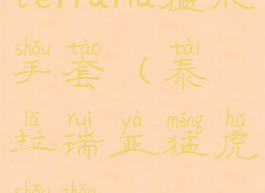 terraria猛
shǒu tào tài
手套（泰
lā ruì yà měng hǔ
拉瑞亚猛虎